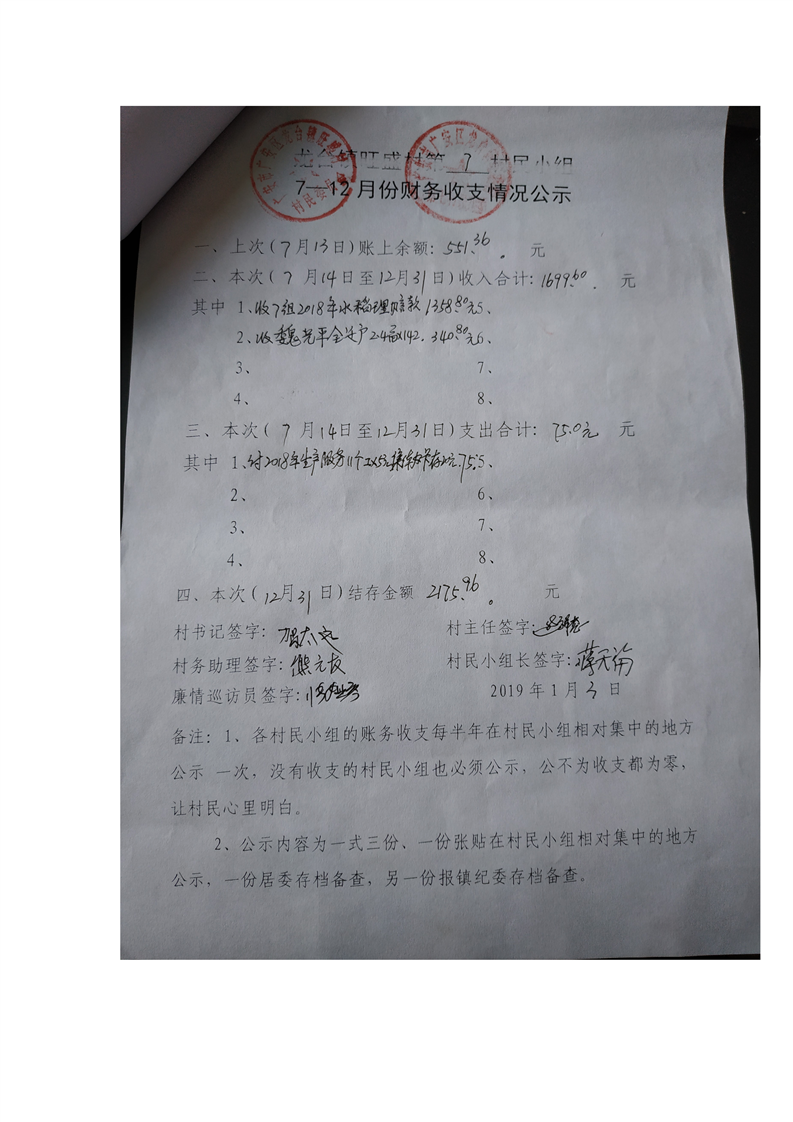 龙台镇旺盛村第 7 村民小组
7—12月份财务收支情况公示
一、上次(7月13日)账上余额：551.36。 元
二、本次(7 月14日至12月31日)收入合计：1699.60. 元
其中 1、收7组2018年水稻理赔款1358.80元5、
2、收魏光平全 户2.4亩×142. 340.80元6、
3、 7、
4、 8、
三、本次( 7 月14日至12月31日)支出合计： 75.0元 元
其中 1、付2018年生产服务11个 75.5、
2、 6、
3、 7、
4、 8、
四、本次(12月31 日)结存金额 2175.96。 元
村书记签字： 村主任签字：
村务助理签字：熊元友 村民小组长签字：蒋天渝
廉情巡访员签字： 2019 年 1 月 3 日
备注：1、各村民小组的账务收支每半年在村民小组相对集中的地方
公示 一次，没有收支的村民小组也必须公示，公不为收支都为零，
让村民心里明白。
2、公示内容为一式三份、一份张贴在村民小组相对集中的地方
公示，一份居委存档备查，另一份报镇纪委存档备查。